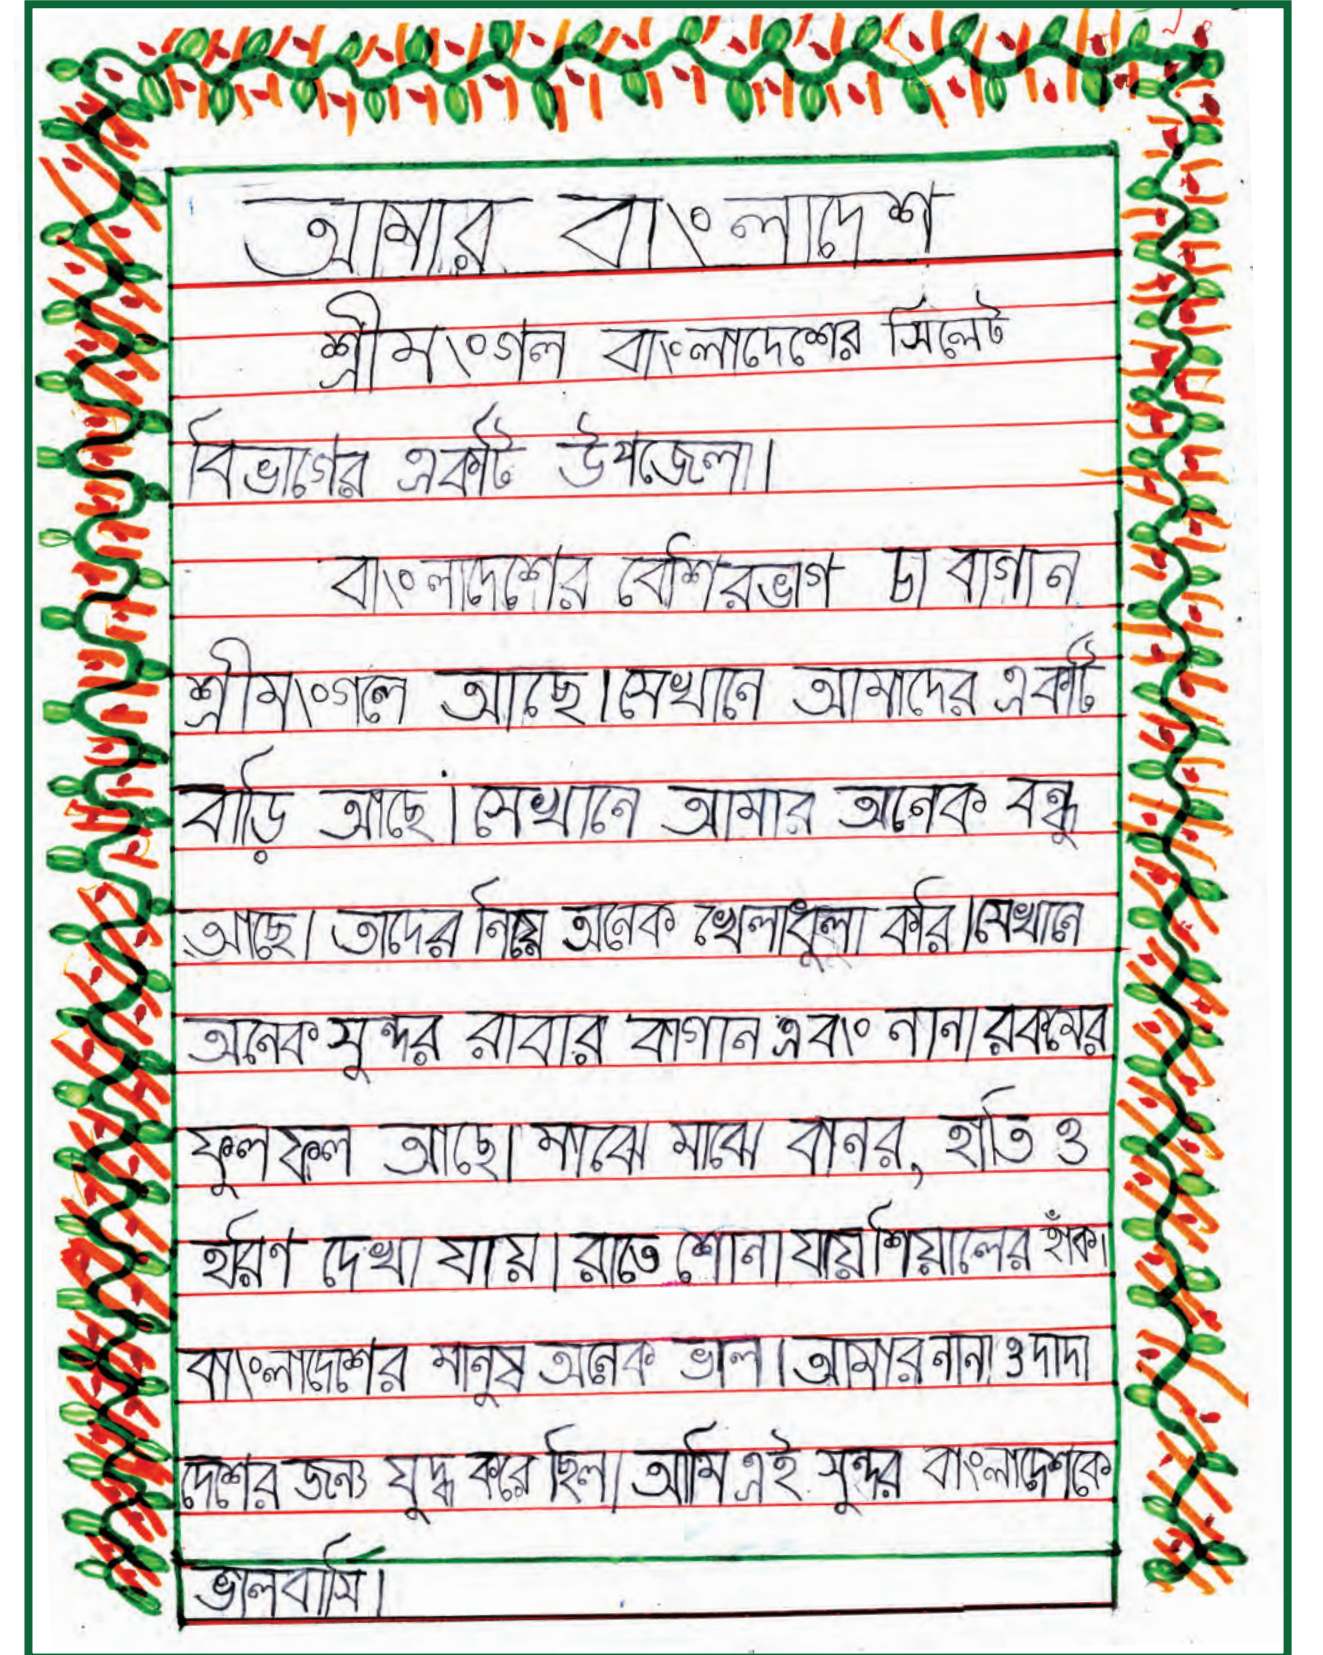 আমার বাংলাদেশ
শ্রীমংগল বাংলাদেশের সিলেট
বিভাগের একটি উপজেলা।
বাংলাদেশের বেশিরভাগ চা বাগান
শ্রীমংগলে আছে। সেখানে আমাদের একটি
বাড়ি আছে। সেখানে আমার অনেক বন্ধু
আছে। তাদের নিয়ে অনেক খেলাধুলা করি। সেখানে
অনেক সুন্দর রাবার বাগান এবং নানা রকমের
ফুল ফল আছে। মাঝে মাঝে বানর, হাতি ও
হরিণ দেখা যায়। রাতে শোনা যায় শিয়ালের হাঁক।
বাংলাদেশের মানুষ অনেক ভাল। আমার নানা ও দাদা
দেশের জন্য যুদ্ধ করে ছিল। আমি এই সুন্দর বাংলাদেশকে
ভালবাসি।